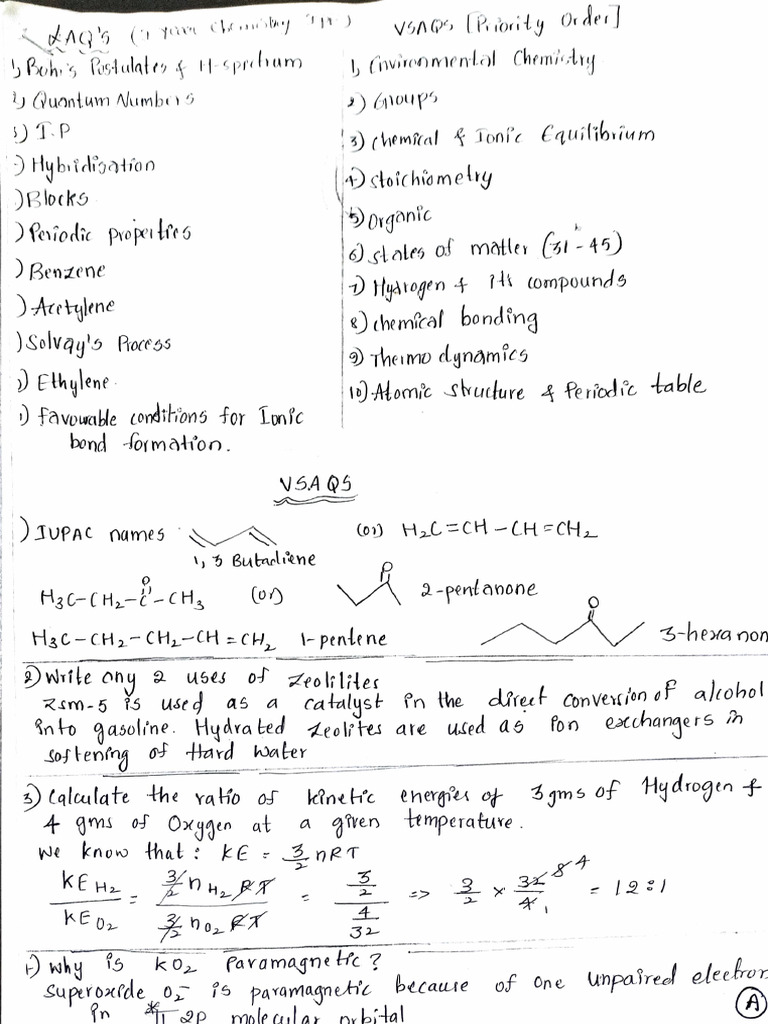 LAQ'S (1 year Chemistry IPE)
1) Bohr's Postulates & H-spectrum
2) Quantum Numbers
3) I.P
) Hybridisation
) Blocks
) Periodic properties
) Benzene
) Acetylene
) Solvay's Process
) Ethylene
) favourable conditions for Ionic
bond formation.
VSAQs [Priority Order]
1) Environmental Chemistry
2) Groups
3) Chemical & Ionic Equilibrium
4) Stoichiometry
5) Organic
6) States of matter (31-45)
7) Hydrogen & its compounds
8) chemical bonding
9) Thermodynamics
10) Atomic Structure & Periodic table
VSAQS
) IUPAC names (or) H₂C=CH-CH=CH₂
1, 3 Butadiene
H₃C-CH₂-C-CH₃ (or) 2-pentanone
O
O
H₃C-CH₂-CH₂-CH=CH₂ 1-pentene 3-hexanon
O
2) Write any 2 uses of Zeolilites
ZSM-5 is used as a catalyst in the direct conversion of alcohol
into gasoline. Hydrated Zeolites are used as ion exchangers in
softening of Hard water
3) Calculate the ratio of kinetic energies of 3gms of Hydrogen &
4 gms of Oxygen at a given temperature.
We know that: KE = 3/2 nRT
KE H₂ / KE O₂ = 3/2 n H₂ RT / 3/2 n O₂ RT = 3/2 / 4/32 => 3/2 × 32/4 8 4 1 = 12:1
) Why is KO₂ Paramagnetic?
Superoxide O₂⁻ is paramagnetic because of one unpaired electron
in *π 2p molecular orbital
A